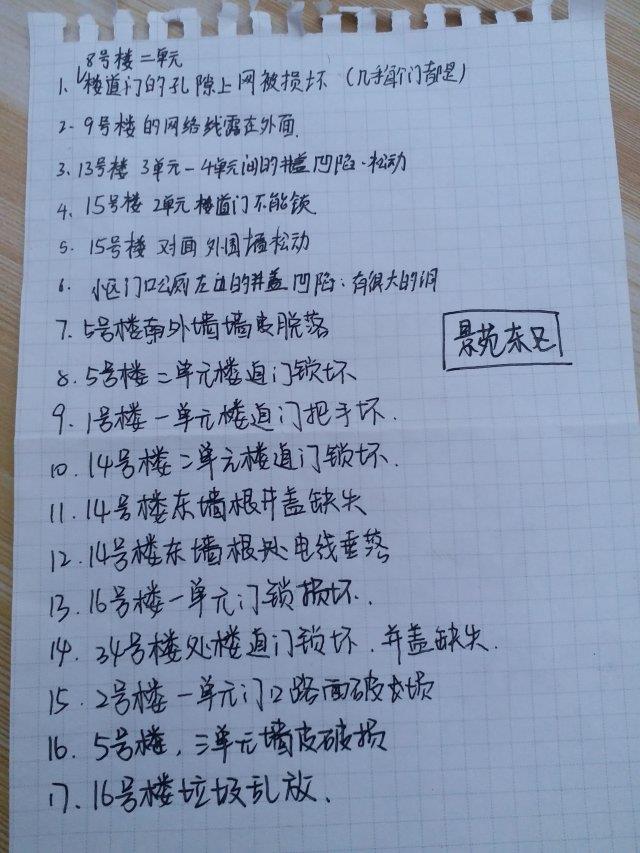 8号楼二单元
1、楼道门的孔隙上网被损坏（几乎每个门都是）
2、9号楼的网络线露在外面.
3、13号楼 3单元-4单元间的井盖凹陷.松动
4、15号楼 2单元楼道门不能锁
5、15号楼 对面外围墙松动
6、小区门口公厕左边的井盖凹陷:有很大的洞
7、5号楼南外墙墙皮脱落
景苑东区
8、5号楼二单元楼道门锁坏
9、1号楼一单元楼道门把手坏.
10、14号楼二单元楼道门锁坏.
11、14号楼东墙根井盖缺失
12、14号楼东墙根处电线垂落
13、16号楼一单元门锁损坏.
14、34号楼处楼道门锁坏.井盖缺失.
15、2号楼一单元门口路面破损
16、5号楼,三单元墙皮破损
17、16号楼垃圾乱放、